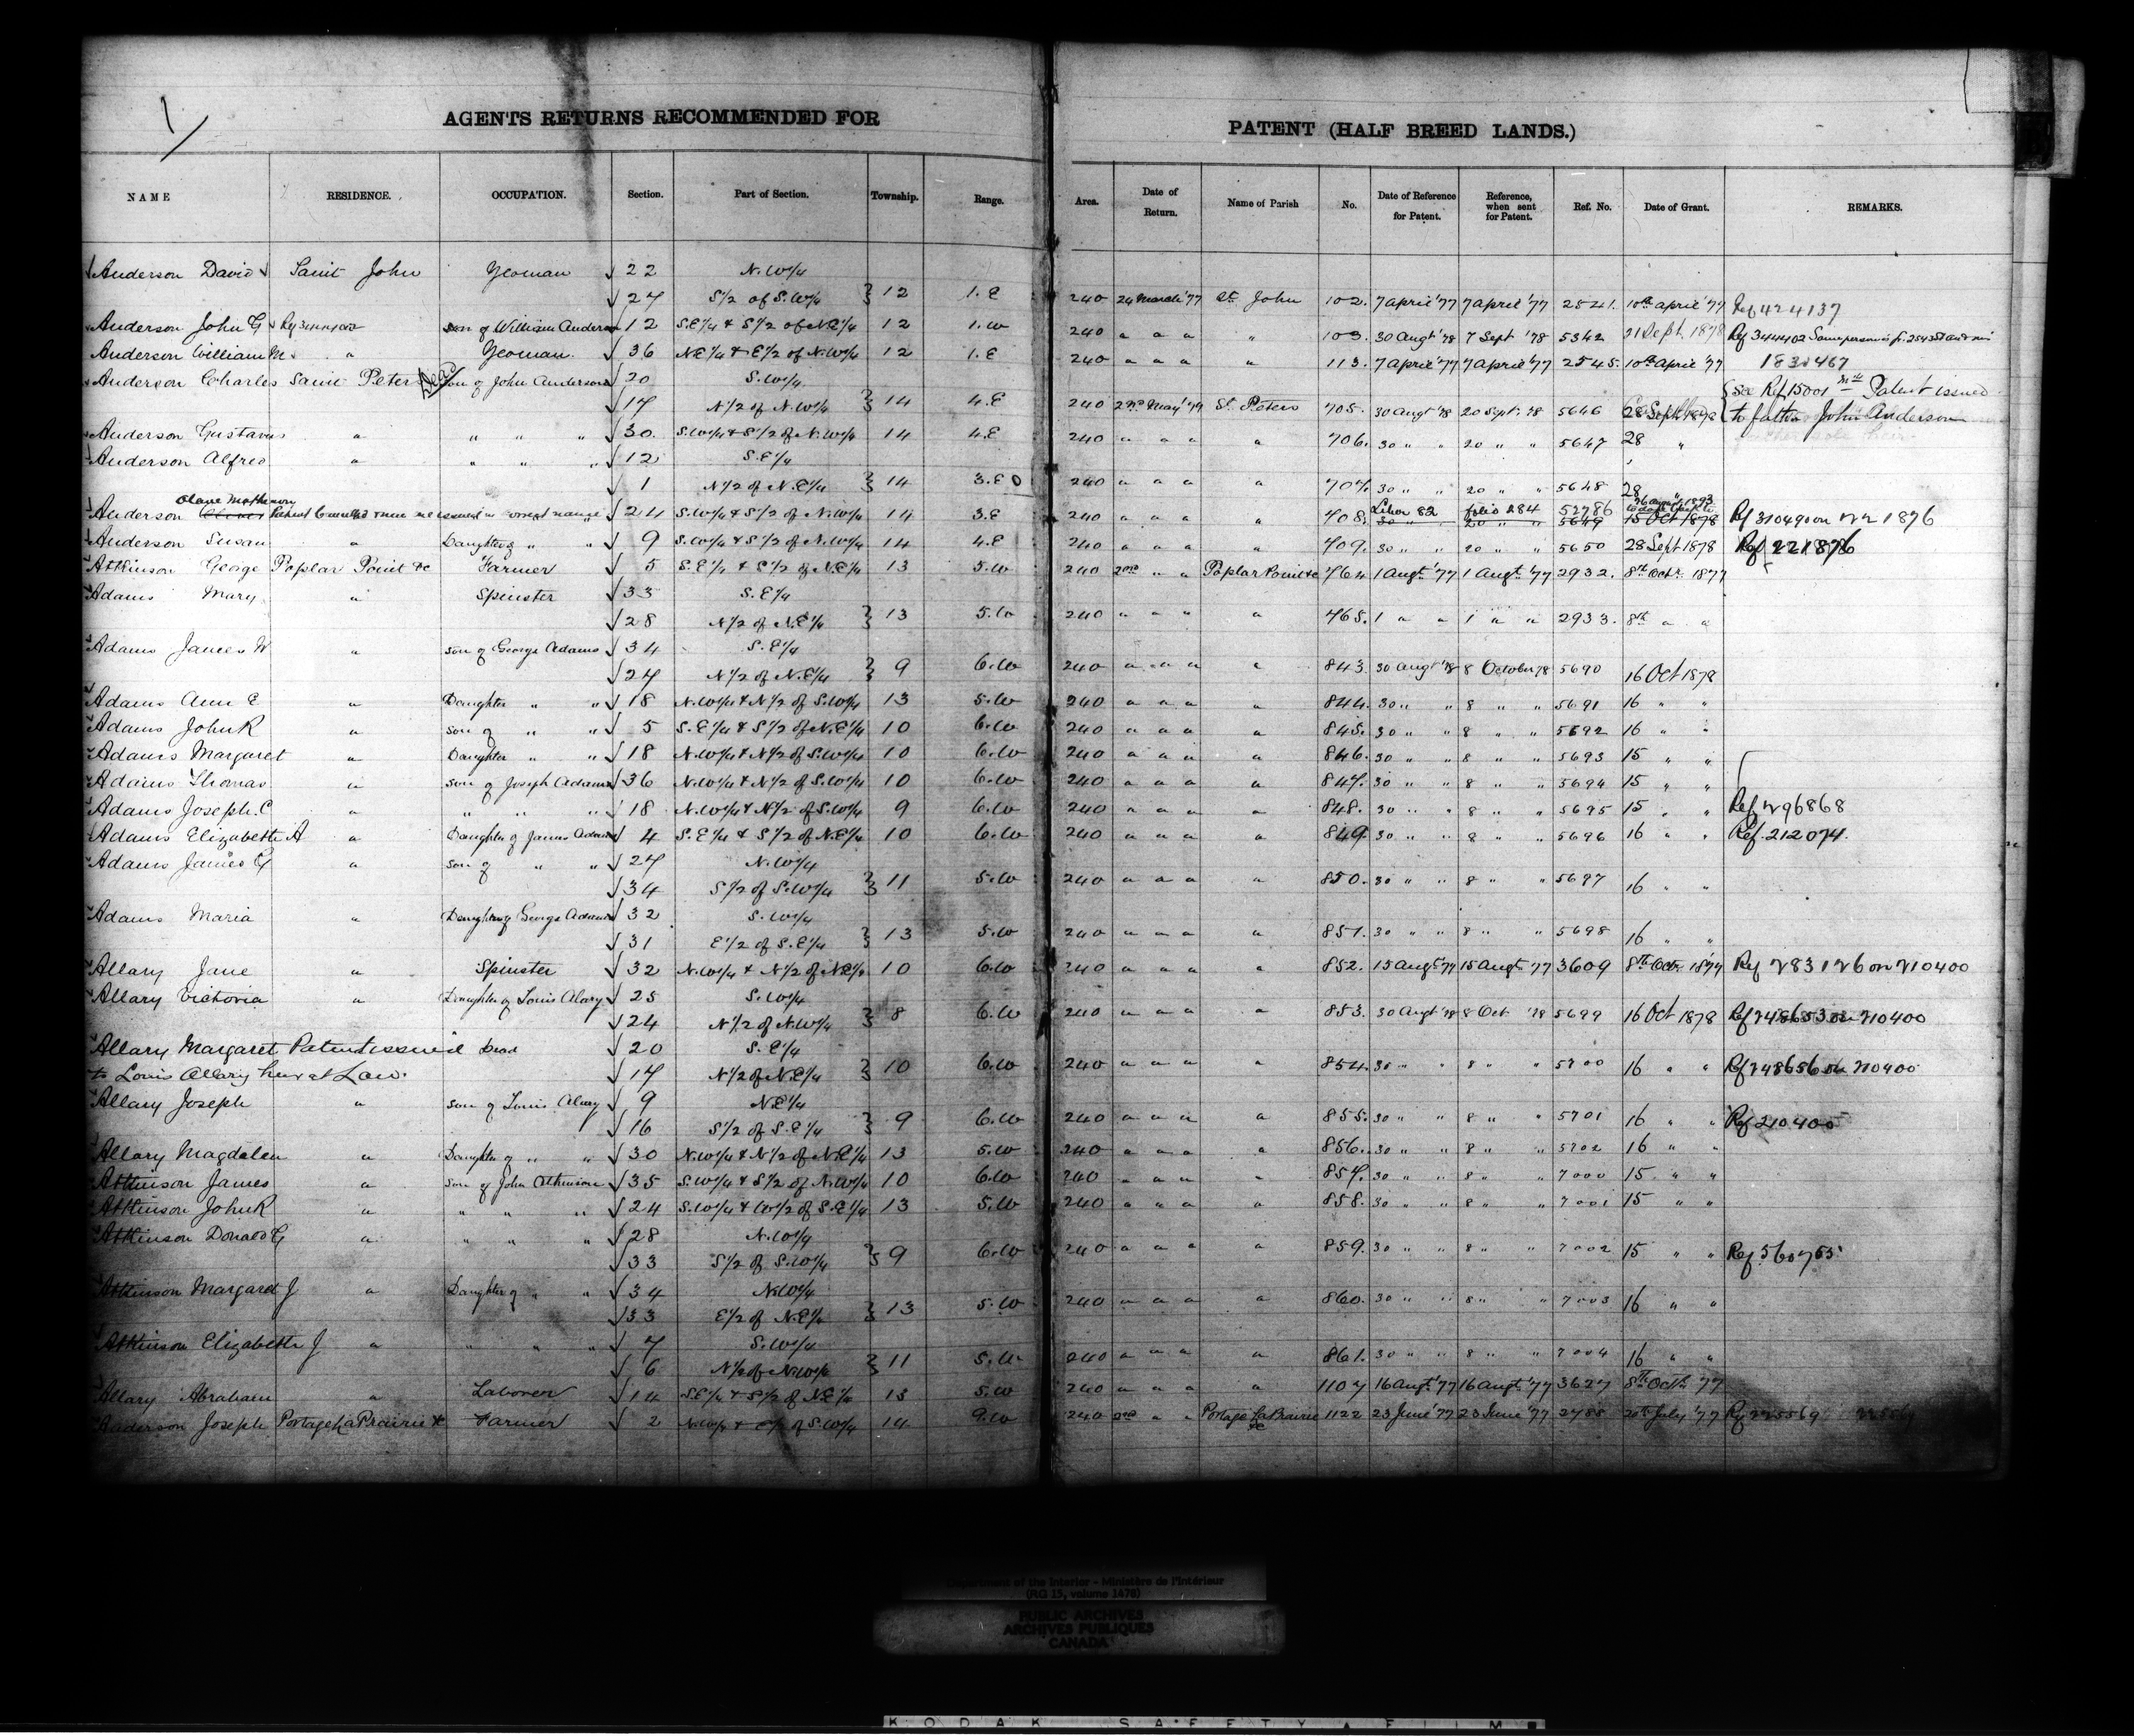 1/
AGENTS RETURNS RECOMMENDED FOR PATENT (HALF BREED LANDS.)
NAME RESIDENCE. OCCUPATION. Section. Part of Section. Township. Range. Area. Date of Return. Name of Parish No. Date of Reference for Patent. Reference, when sent for Patent. Ref. No. Date of Grant. REMARKS.
Anderson David Saint John Yeoman 22 N.W1/4
27 S1/2 of S.W1/4 12 1.E 240 24 March '77 St. John 102. 7 April '77 7 April '77 2541. 10th April '77 Ref 424137
Anderson John G son of William Anderson 12 S.E1/4 & S1/2 of N.E1/4 12 1.W 240 " " " " 103. 30 Augt '78 7 Sept '78 5342 21 Sept. 1878
Anderson William M. " Yeoman. 36 N.E1/4 & E1/2 of N.W1/4 12 1.E 240 " " " " 113. 7 April '77 7 April '77 2545. 10th April '77
Anderson Charles Saint Peters Dead son of John Anderson 20 S.W1/4
17 N1/2 of N.W1/4 14 4.E 240 2nd May '77 St. Peters 705. 30 Augt '78 20 Sept. '78 5646 28 Sept 1878 See Ref 15001 Patent issued to father John Anderson
Anderson Gustavus " " " " 30. S.W1/4 & S1/2 of N.W1/4 14 4.E 240 " " " " 706. 30 " " 20 " " 5647 28 "
Anderson Alfred " " " " 12 S.E1/4
1 N1/2 of N.E1/4 14 3.E 240 " " " " 707. 30 " " 20 " " 5648 28 "
Anderson Patent Cancelled & new one issued in correct name 24 S.W1/4 & S1/2 of N.W1/4 14 3.E 240 " " " " 708. Liber 82 folio 284 52786
30 " 20 " " 5649 15 Oct 1878
Anderson Susan " Daughter of " " 9 S.W1/4 & S1/2 of N.W1/4 14 4.E 240 " " " " 709. 30 " " 20 " " 5650 28 Sept 1878 Ref 221876
Atkinson George Poplar Point &c Farmer 5 S.E1/4 & S1/2 of N.E1/4 13 5.W 240 2nd " " Poplar Point &c 764 1 Augt. '77 1 Augt. '77 2932. 8th Octr. 1877
Adams Mary " Spinster 33 S.E1/4
28 N1/2 of N.E1/4 13 5.W 240 " " " " 765. 1 " " 1 " " 2933. 8th " "
Adams James W " son of George Adams 34 S.E1/4
27 N1/2 of N.E1/4 9 6.W 240 " " " " 843. 30 Augt '78 8 October 78 5690 16 Oct 1878
Adams Ann E " Daughter " " 18 N.W1/4 & N1/2 of S.W1/4 13 5.W 240 " " " " 844. 30 " " 8 " " 5691 16 " "
Adams John R " son of " " 5 S.E1/4 & S1/2 of N.E1/4 10 6.W 240 " " " " 845. 30 " " 8 " " 5692 16 " "
Adams Margaret " Daughter " " 18 N.W1/4 & N1/2 of S.W1/4 10 6.W 240 " " " " 846. 30 " " 8 " " 5693 15 " "
Adams Thomas " son of Joseph Adams 36 N.W1/4 & N1/2 of S.W1/4 10 6.W 240 " " " " 847. 30 " " 8 " " 5694 15 " "
Adams Joseph. C " " " " 18 N.W1/4 & N1/2 of S.W1/4 9 6.W 240 " " " " 848. 30 " " 8 " " 5695 15 " " Ref 296868
Adams Elizabeth A " Daughter of James Adams 4 S.E1/4 & S1/2 of N.E1/4 10 6.W 240 " " " " 849. 30 " " 8 " " 5696 16 " " Ref. 212074.
Adams James G " son of " " 27 N.W1/4
34 S1/2 of S.W1/4 11 5.W 240 " " " " 850. 30 " " 8 " " 5697 16 " "
Adams Maria " Daughter of George Adams 32 S.W1/4
31 E1/2 of S.E1/4 13 5.W 240 " " " " 851. 30 " " 8 " " 5698 16 " "
Allary Jane " Spinster 32 N.W1/4 & N1/2 of N.E1/4 10 6.W 240 " " " " 852. 15 Augt '77 15 Augt '77 3609 8th Octr. 1877 Ref 283126 on 210400
Allary Victoria " Daughter of Louis Alary 25 S.W1/4
24 N1/2 of N.W1/4 8 6.W 240 " " " " 853. 30 Augt '78 8 Oct '78 5699 16 Oct 1878 Ref 248653 on 210400
Allary Margaret Patent issued Dead 20 S.E1/4
to Louis Allary heir at Law. 17 N1/2 of N.E1/4 10 6.W 240 " " " " 854. 30 " " 8 " " 5700 16 " " Ref 248656 on 210400
Allary Joseph " son of Louis Alary 9 N.E1/4
16 S1/2 of S.E1/4 9 6.W 240 " " " " 855. 30 " " 8 " " 5701 16 " " Ref 210400
Allary Magdalen " Daughter of " " 30 N.W1/4 & N1/2 of N.E1/4 13 5.W 240 " " " " 856. 30 " " 8 " " 5702 16 " "
Atkinson James " son of John Atkinson 35 S.W1/4 & S1/2 of N.W1/4 10 6.W 240 " " " " 857. 30 " " 8 " " 7000 15 " "
Atkinson John R " " " " 24 S.W1/4 & W1/2 of S.E1/4 13 5.W 240 " " " " 858. 30 " " 8 " " 7001 15 " "
Atkinson Donald G " " " " 28 N.W1/4
33 S1/2 of S.W1/4 9 6.W 240 " " " " 859. 30 " " 8 " " 7002 15 " " Ref 560755
Atkinson Margaret J " Daughter of " " 34 N.W1/4
33 E1/2 of N.E1/4 13 5.W 240 " " " " 860. 30 " " 8 " " 7003 16 " "
Atkinson Elizabeth J " " " " 7 S.W1/4
6 N1/2 of N.W1/4 11 5.W 240 " " " " 861. 30 " " 8 " " 7004 16 " "
Allary Abraham " Laborer 14 S.E1/4 & S1/2 of N.E1/4 13 5.W 240 " " " " 1107 16 Augt. '77 16 Augt. '77 3627 8th Octr. '77
Anderson Joseph Portage La Prairie &c Farmer 2 14 9.W 240 2nd " " Portage La Prairie &c 1122 23 June '77 23 June '77 2788 20th July '77 Ref 225569
Department of the Interior - Ministère de l'Intérieur
(RG 15, volume 1478)
PUBLIC ARCHIVES
ARCHIVES PUBLIQUES
CANADA
KODAK SAFETY FILM